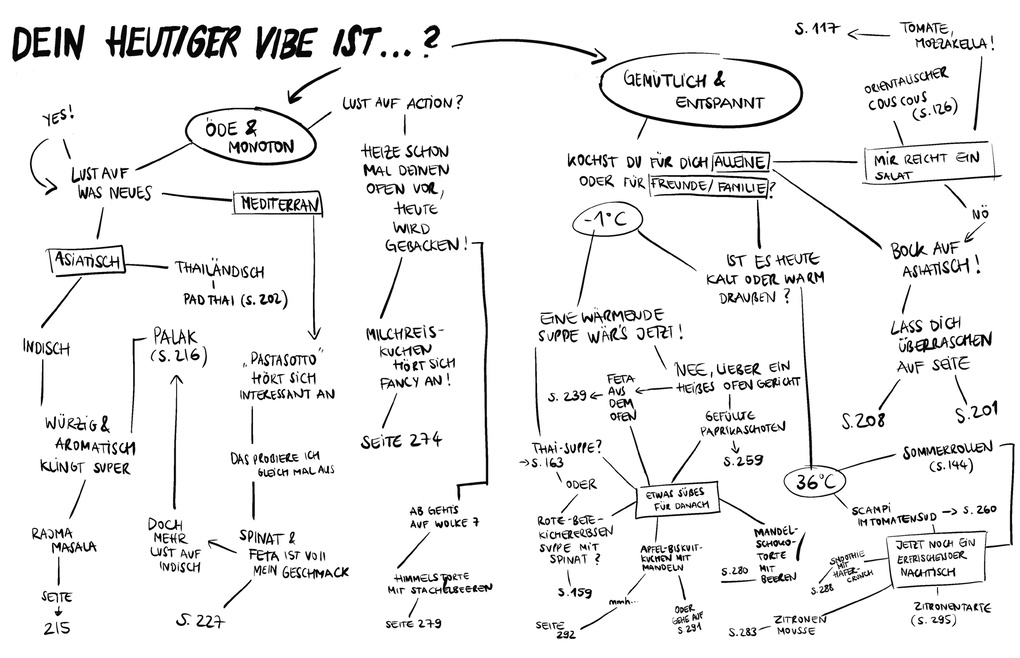 DEIN HEUTIGER VIBE IST...?
ÖDE &
MONOTON
YES!
LUST AUF
WAS NEUES
MEDITERRAN
ASIATISCH
THAILÄNDISCH
PAD THAI (S. 202)
INDISCH
PALAK
(S. 216)
WÜRZIG &
AROMATISCH
KLINGT SUPER
RAJMA
MASALA
SEITE
215
DOCH
MEHR
LUST AUF
INDISCH
„PASTASOTTO"
HÖRT SICH
INTERESSANT AN
DAS PROBIERE ICH
GLEICH MAL AUS
SPINAT &
FETA IST VOLL
MEIN GESCHMACK
S. 227
LUST AUF ACTION?
HEIZE SCHON
MAL DEINEN
OFEN VOR,
HEUTE
WIRD
GEBACKEN!
MILCHREIS-
KUCHEN
HÖRT SICH
FANCY AN!
SEITE 274
AB GEHTS
AUF WOLKE 7
HIMMELSTORTE
MIT STACHELBEEREN
SEITE 279
GEMÜTLICH &
ENTSPANNT
KOCHST DU FÜR DICH ALLEINE
ODER FÜR FREUNDE/FAMILIE?
MIR REICHT EIN
SALAT
ORIENTALISCHER
COUSCOUS
(S. 126)
TOMATE,
MOZZARELLA!
S. 117
NÖ
BOCK AUF
ASIATISCH!
LASS DICH
ÜBERRASCHEN
AUF SEITE
S. 208
S. 201
IST ES HEUTE
KALT ODER WARM
DRAUßEN?
-1°C
EINE WÄRMENDE
SUPPE WÄR'S JETZT!
NEE, LIEBER EIN
HEIßES OFENGERICHT
FETA
AUS
DEM
OFEN
S. 239
GEFÜLLTE
PAPRIKASCHOTEN
S. 259
THAI-SUPPE?
S. 163
ODER
ROTE-BETE-
KICHERERBSEN
SUPPE MIT
SPINAT?
S. 159
ETWAS SÜßES
FÜR DANACH
APFEL-BISKUIT-
KUCHEN MIT
MANDELN
mmh...
SEITE
292
ODER
GEHE AUF
S 291
MANDEL-
SCHOKO-
TORTE
MIT
BEEREN
S. 280
36°C
SOMMERROLLEN
(S. 144)
SCAMPI
IM TOMATENSUD
S. 260
JETZT NOCH EIN
ERFRISCHENDER
NACHTISCH
SMOOTHIE
MIT
HAFER-
CRUNCH
S. 288
ZITRONEN
MOUSSE
S. 283
ZITRONENTARTE
(S. 295)